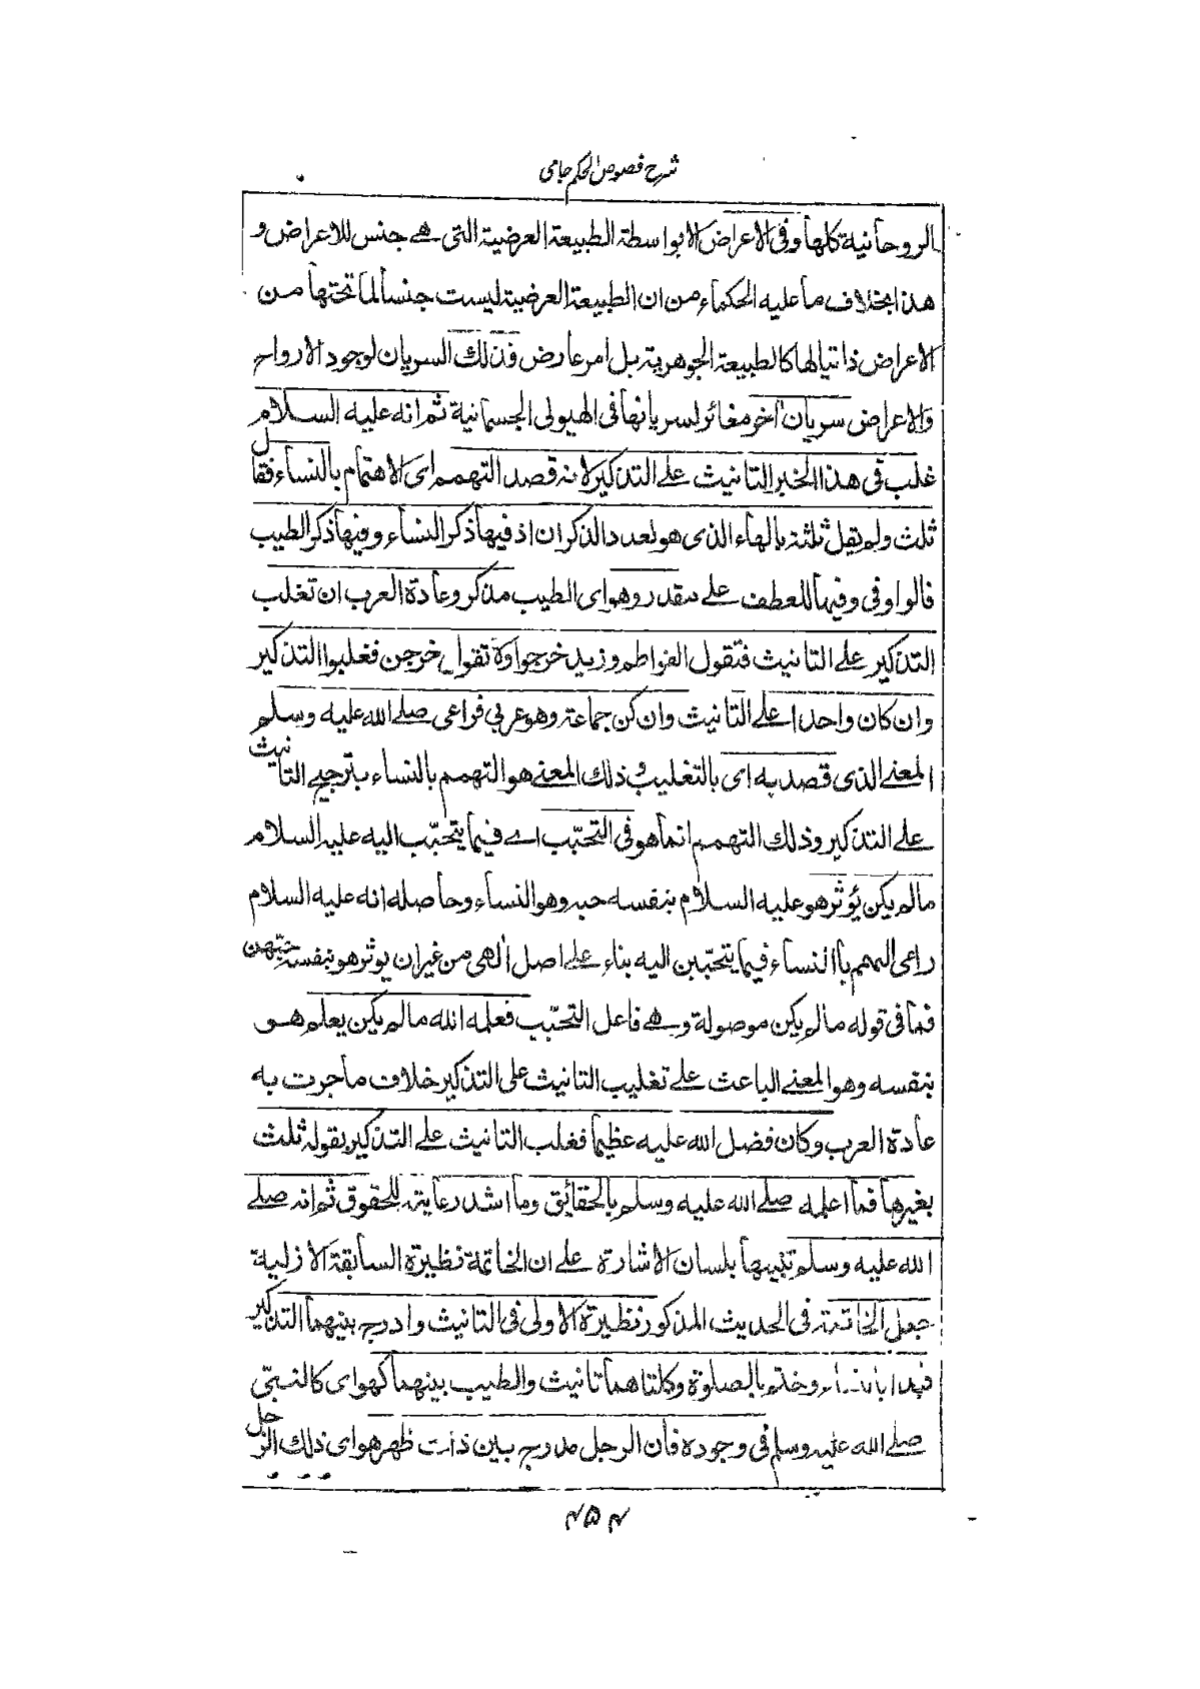 شرح فصوص الحكم جامی
الروحانية كلها وفى الاعراض الا بواسطة الطبيعة العرضية التى هے جنس للاعراض و
هذا بخلاف ما عليه الحكماء من ان الطبيعة العرضية ليست جنسا لما تحتها من
الاعراض ذاتيا لها كالطبيعة الجوهرية بل امر عارض فذلك السريان لوجود الارواح
والاعراض سريان آخر مغائر لسريانها فى الهيولى الجسمانية ثم انه عليه السلام
غلب فى هذا الخبر التانيث علے التذكير لانه قصد التهمم اى الاهتمام بالنساء فقال
ثلث ولم يقل ثلثة بالهاء الذى هو لعدد الذكران اذ فيها ذكر النساء وفيها ذكر الطيب
فالواو فى وفيها للعطف علے مقدر وهو اى الطيب مذكر وعادة العرب ان تغلب
التذكير علے التانيث فتقول الفواطم وزيد خرجوا ولا تقول خرجن فغلبوا التذكير
وان كان واحدا علے التانيث وان كن جماعة وهو عربى فراعى صلے الله عليه وسلم
المعنے الذى قصد به اى بالتغليب و ذلك المعنے هو التهمم بالنساء بترجيح التانيث
علے التذكير وذلك التهمم انما هو فى التحبّب اے فيما يتحبّب اليه عليه السلام
مالم يكن يؤثر هو عليه السلام بنفسه حبه وهو النساء وحاصله انه عليه السلام
راعى المهم بالنساء فيما يتحبّبن اليه بناء علے اصل الهى من غير ان يوثر هو بنفسه حبّهن
فما فى قوله مالم يكن موصولة وهے فاعل التحبّب فعلمه الله مالم يكن يعلم هو
بنفسه وهو المعنے الباعث علے تغليب التانيث على التذكير خلاف ما جرت به
عادة العرب وكان فضل الله عليه عظيما فغلب التانيث علے التذكير بقوله ثلث
بغيرها فما اعلمه صلے الله عليه وسلم بالحقائق وما اشد رعايته للحقوق ثم انه صلے
الله عليه وسلم تنبيها بلسان الاشارة علے ان الخاتمة نظيرة السابقة الازلية
جعل الخاتمة فى الحديث المذكور نظيرة الاولى فى التانيث وادرج بينهما التذكير
فبدا بالنساء وختم بالصلوة وكلتاهما تانيث والطيب بينهما كهو اى كالنبىّ
صلے الله عليه وسلم فى وجوده فان الرجل مدرج بين ذات ظهر هو اى ذلك الرجل
۴۵۴